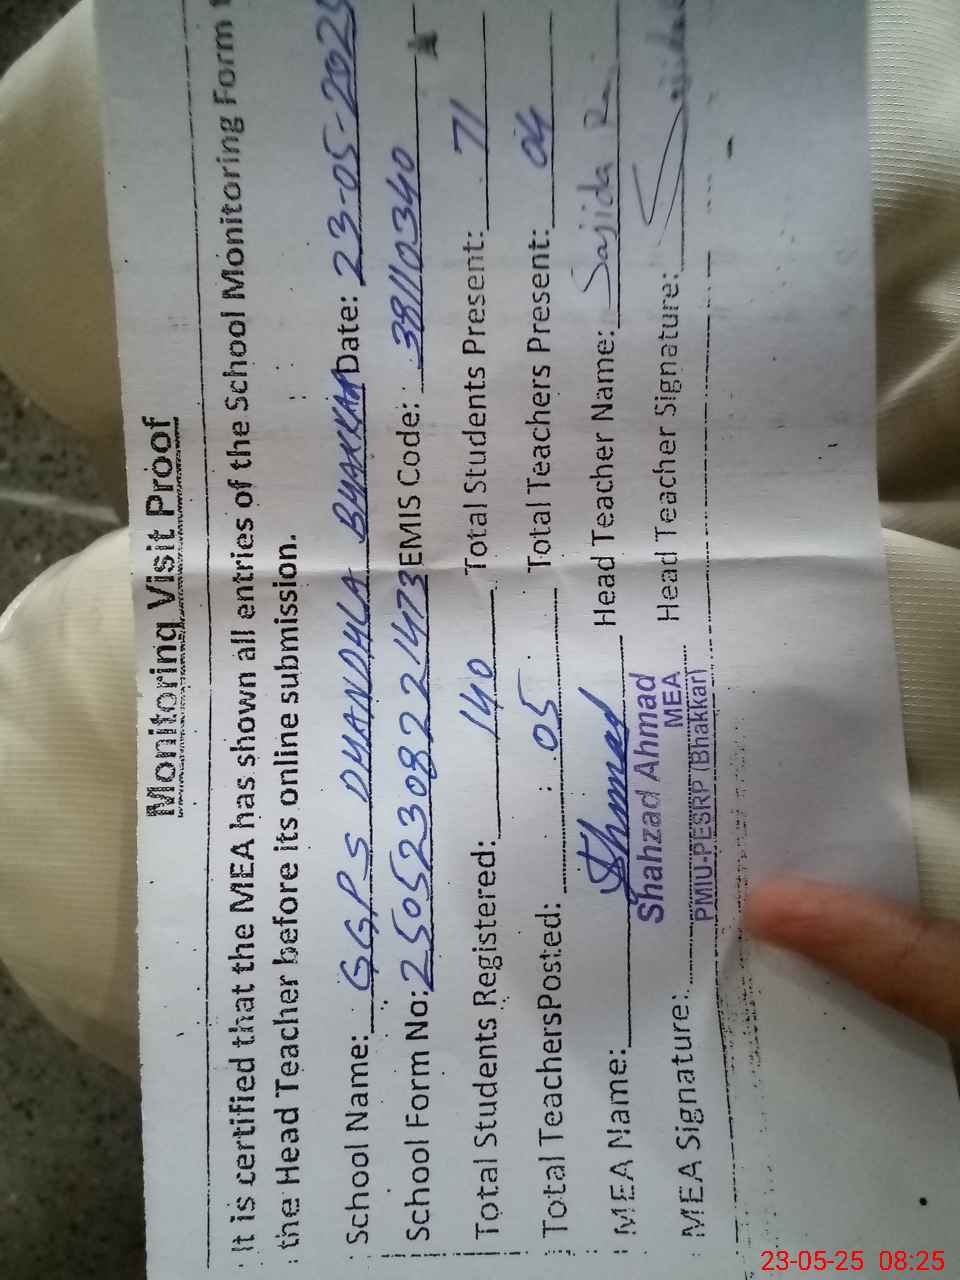 Monitoring Visit Proof
It is certified that the MEA has shown all entries of the School Monitoring Form
the Head Teacher before its online submission.
School Name: GGPS DHANDHLA BHAKKAR Date: 23-05-2025
School Form No: 2505230822 1473 EMIS Code: 38110340
Total Students Registered: 140 Total Students Present: 71
Total TeachersPosted: 05 Total Teachers Present: 04
MEA Name: Ahmad Head Teacher Name: Sajida
Shahzad Ahmad
MEA
MEA Signature: PMIU-PESRP (Bhakkar) Head Teacher Signature: Sajida
23-05-25 08:25